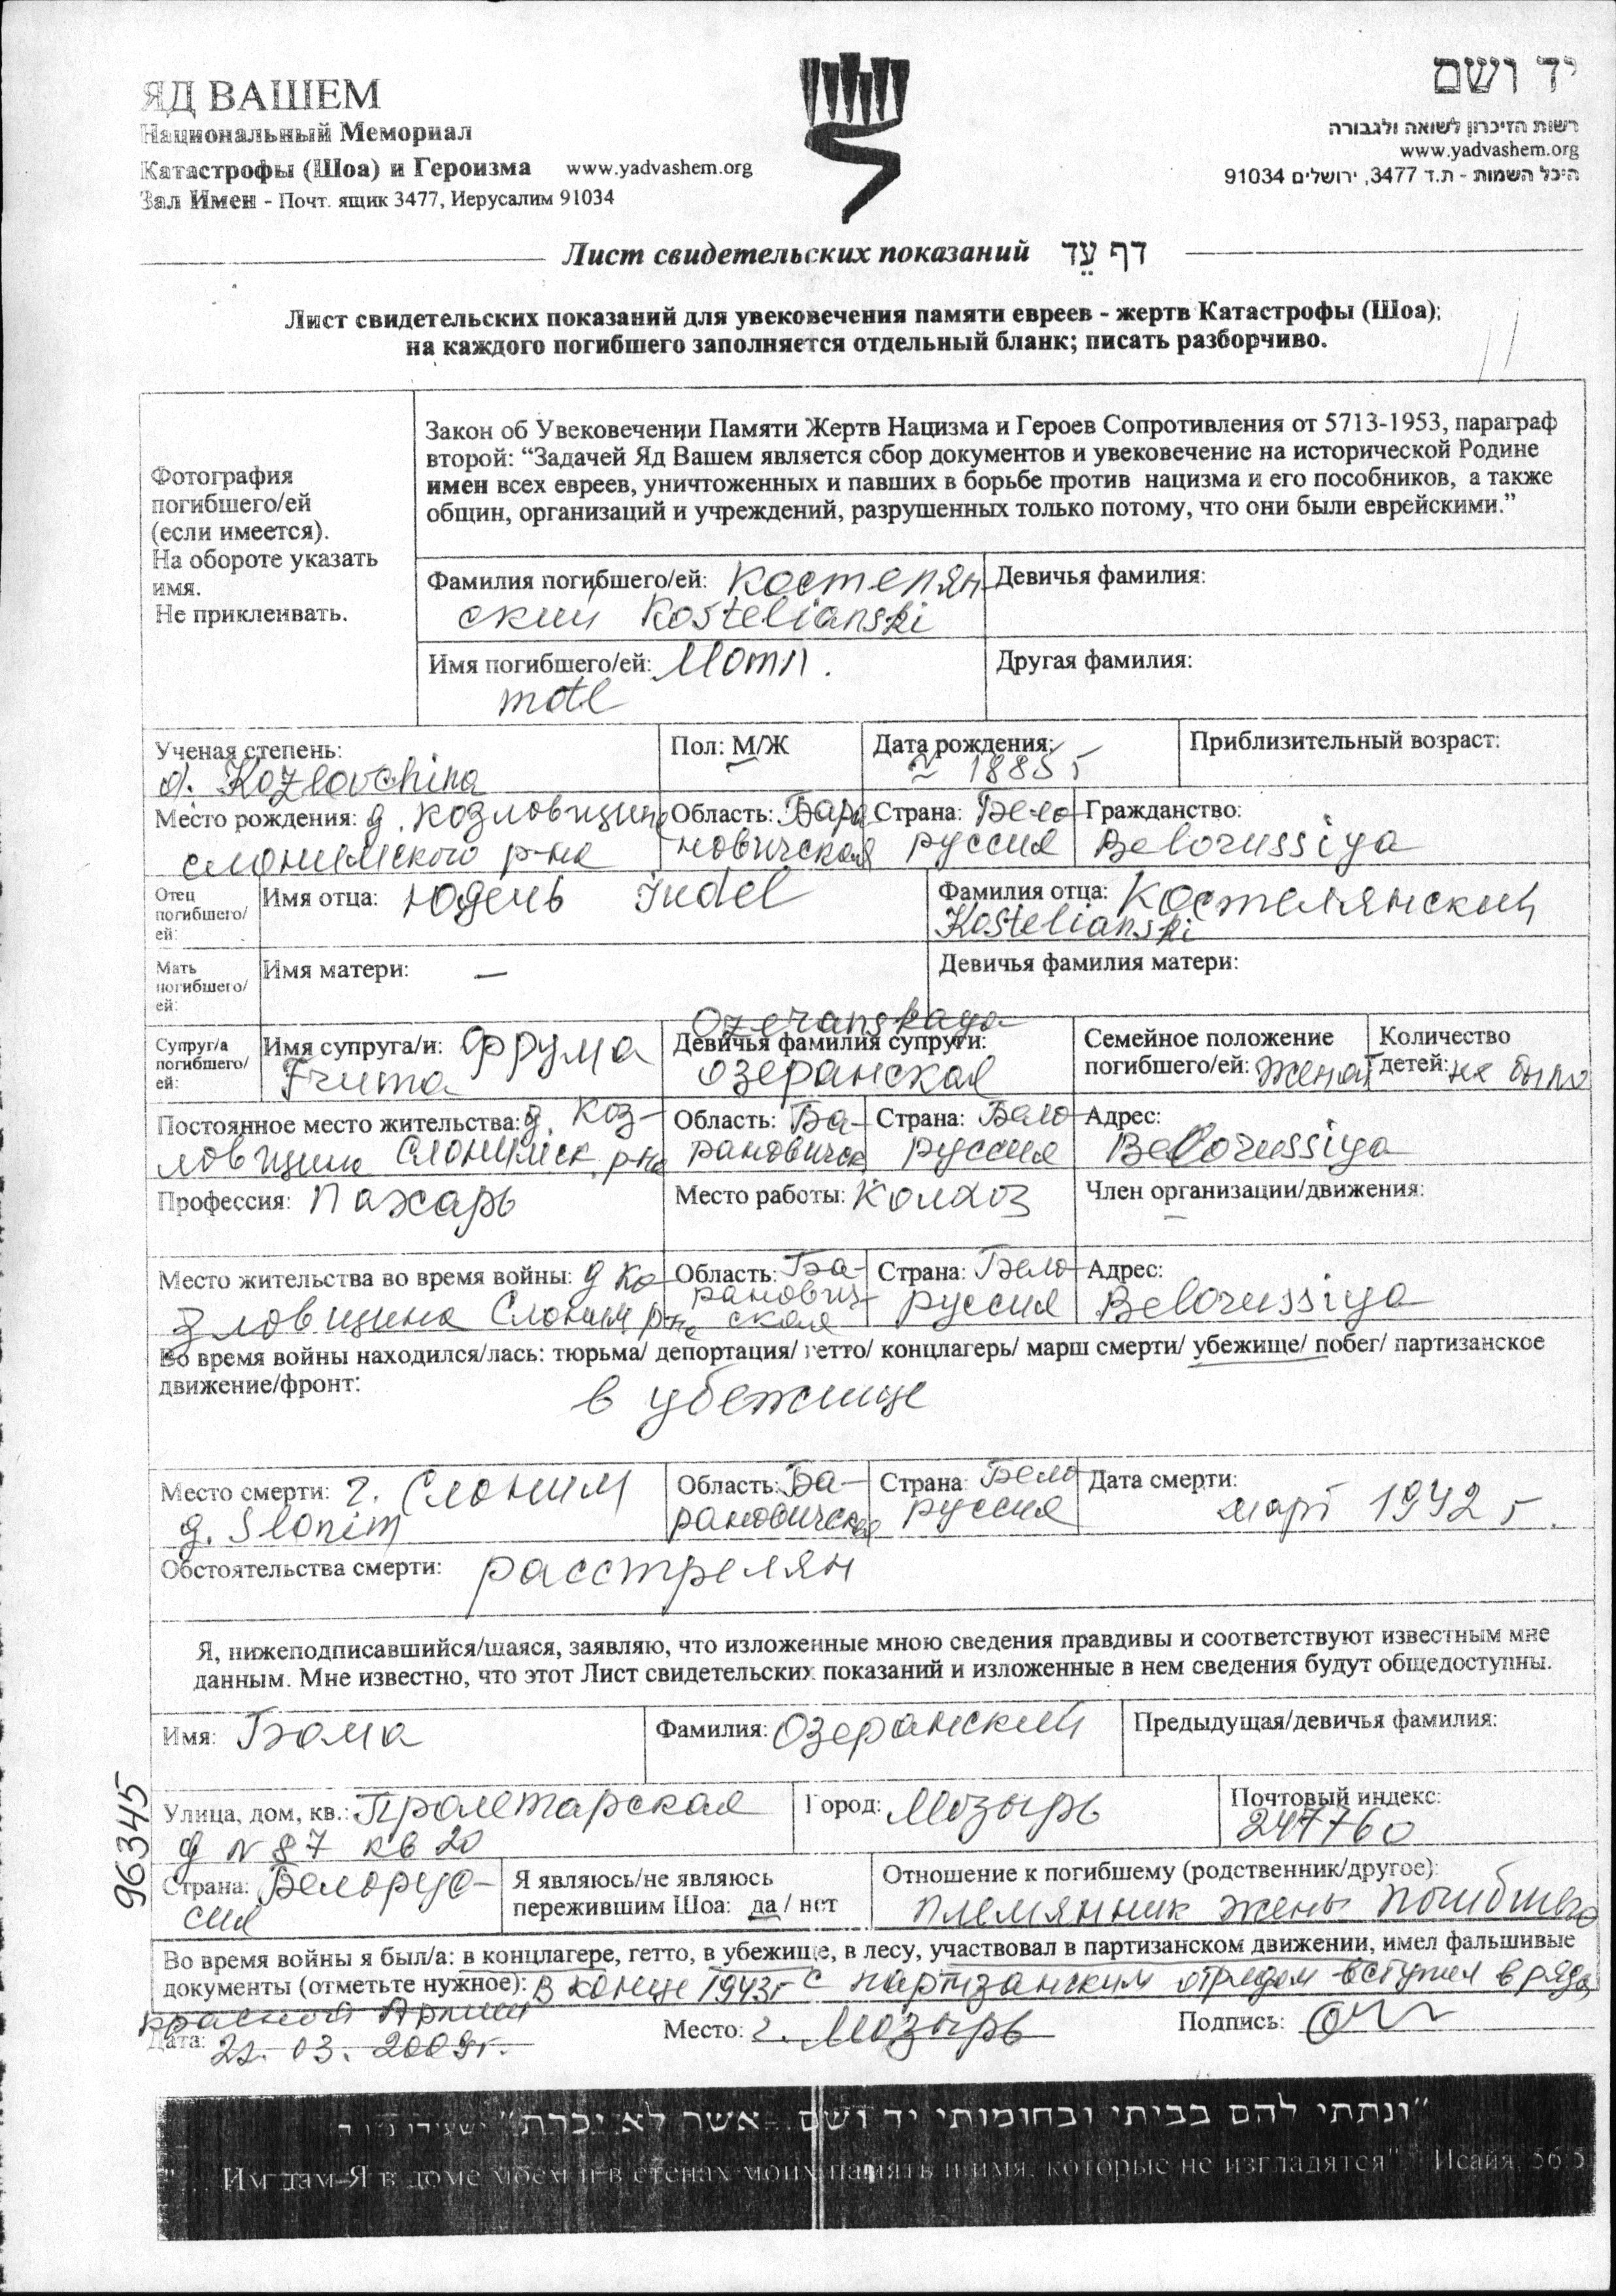 ЯД ВАШЕМ
Национальный Мемориал
Катастрофы (Шоа) и Героизма www.yadvashem.org
Зал Имен - Почт. ящик 3477, Иерусалим 91034
יד ושם
רשות הזיכרון לשואה ולגבורה
www.yadvashem.org
היכל השמות - ת.ד 3477, ירושלים 91034
Лист свидетельских показаний דף עֵד
Лист свидетельских показаний для увековечения памяти евреев - жертв Катастрофы (Шоа);
на каждого погибшего заполняется отдельный бланк; писать разборчиво.
Фотография
погибшего/ей
(если имеется).
На обороте указать
имя.
Не приклеивать.
Закон об Увековечении Памяти Жертв Нацизма и Героев Сопротивления от 5713-1953, параграф
второй: “Задачей Яд Вашем является сбор документов и увековечение на исторической Родине
имен всех евреев, уничтоженных и павших в борьбе против нацизма и его пособников, а также
общин, организаций и учреждений, разрушенных только потому, что они были еврейскими.”
Фамилия погибшего/ей: Костелян
ский Kostelianski
Девичья фамилия:
Имя погибшего/ей: Мотл.
motl
Другая фамилия:
Ученая степень:
d. Kozlovchina
Пол: М/Ж
Дата рождения:
≈ 1885 г
Приблизительный возраст:
Место рождения: д. Козловщина
слонимского р-на
Область: Бара
новичская
Страна: Бело
руссия
Гражданство:
Belorussiya
Отец
погибшего/
ей:
Имя отца: Юдель Iudel
Фамилия отца: Костелянский
Kostelianski
Мать
погибшего/
ей:
Имя матери: —
Девичья фамилия матери:
Супруг/а
погибшего/
ей:
Имя супруга/и: Фрума
Fruma
Ozeranskaya
Девичья фамилия супруги:
Озеранская
Семейное положение
погибшего/ей: женат
Количество
детей: не было
Постоянное место жительства: д. Коз-
ловщина Слонимск. р-на
Область: Ба-
рановичск
Страна: Бело
руссия
Адрес:
Belorussiya
Профессия: Пахарь
Место работы: Колхоз
Член организации/движения:
—
Место жительства во время войны: д Ко
зловщина Слоним р-на
Область: Ба-
рановичс-
ская
Страна: Бело
руссия
Адрес:
Belorussiya
Во время войны находился/лась: тюрьма/ депортация/ гетто/ концлагерь/ марш смерти/ убежище/ побег/ партизанское
движение/фронт:
в убежище
Место смерти: г. Слоним
g. Slonim
Область: Ба-
рановичская
Страна: Бело
руссия
Дата смерти:
март 1942 г.
Обстоятельства смерти: расстрелян
Я, нижеподписавшийся/шаяся, заявляю, что изложенные мною сведения правдивы и соответствуют известным мне
данным. Мне известно, что этот Лист свидетельских показаний и изложенные в нем сведения будут общедоступны.
Имя: Бома
Фамилия: Озеранский
Предыдущая/девичья фамилия:
Улица, дом, кв.: Пролетарская
д N 87 кв 20
Город: Мозырь
Почтовый индекс:
247760
Страна: Белорус-
сия
Я являюсь/не являюсь
пережившим Шоа: да / нет
Отношение к погибшему (родственник/другое):
племянник жены погибшего
Во время войны я был/а: в концлагере, гетто, в убежище, в лесу, участвовал в партизанском движении, имел фальшивые
документы (отметьте нужное): В конце 1943г с партизанским отрядом вступил в ряды
красной Армии
Дата: 22. 03. 2009г.
Место: г. Мозырь
Подпись:
96345
"ונתתי להם בביתי ובחומותי יד ושם...אשר לא יכרת"
"... Им дам Я в доме моем и в стенах моих память и имя, которые не изгладятся" Исайя, 56:5